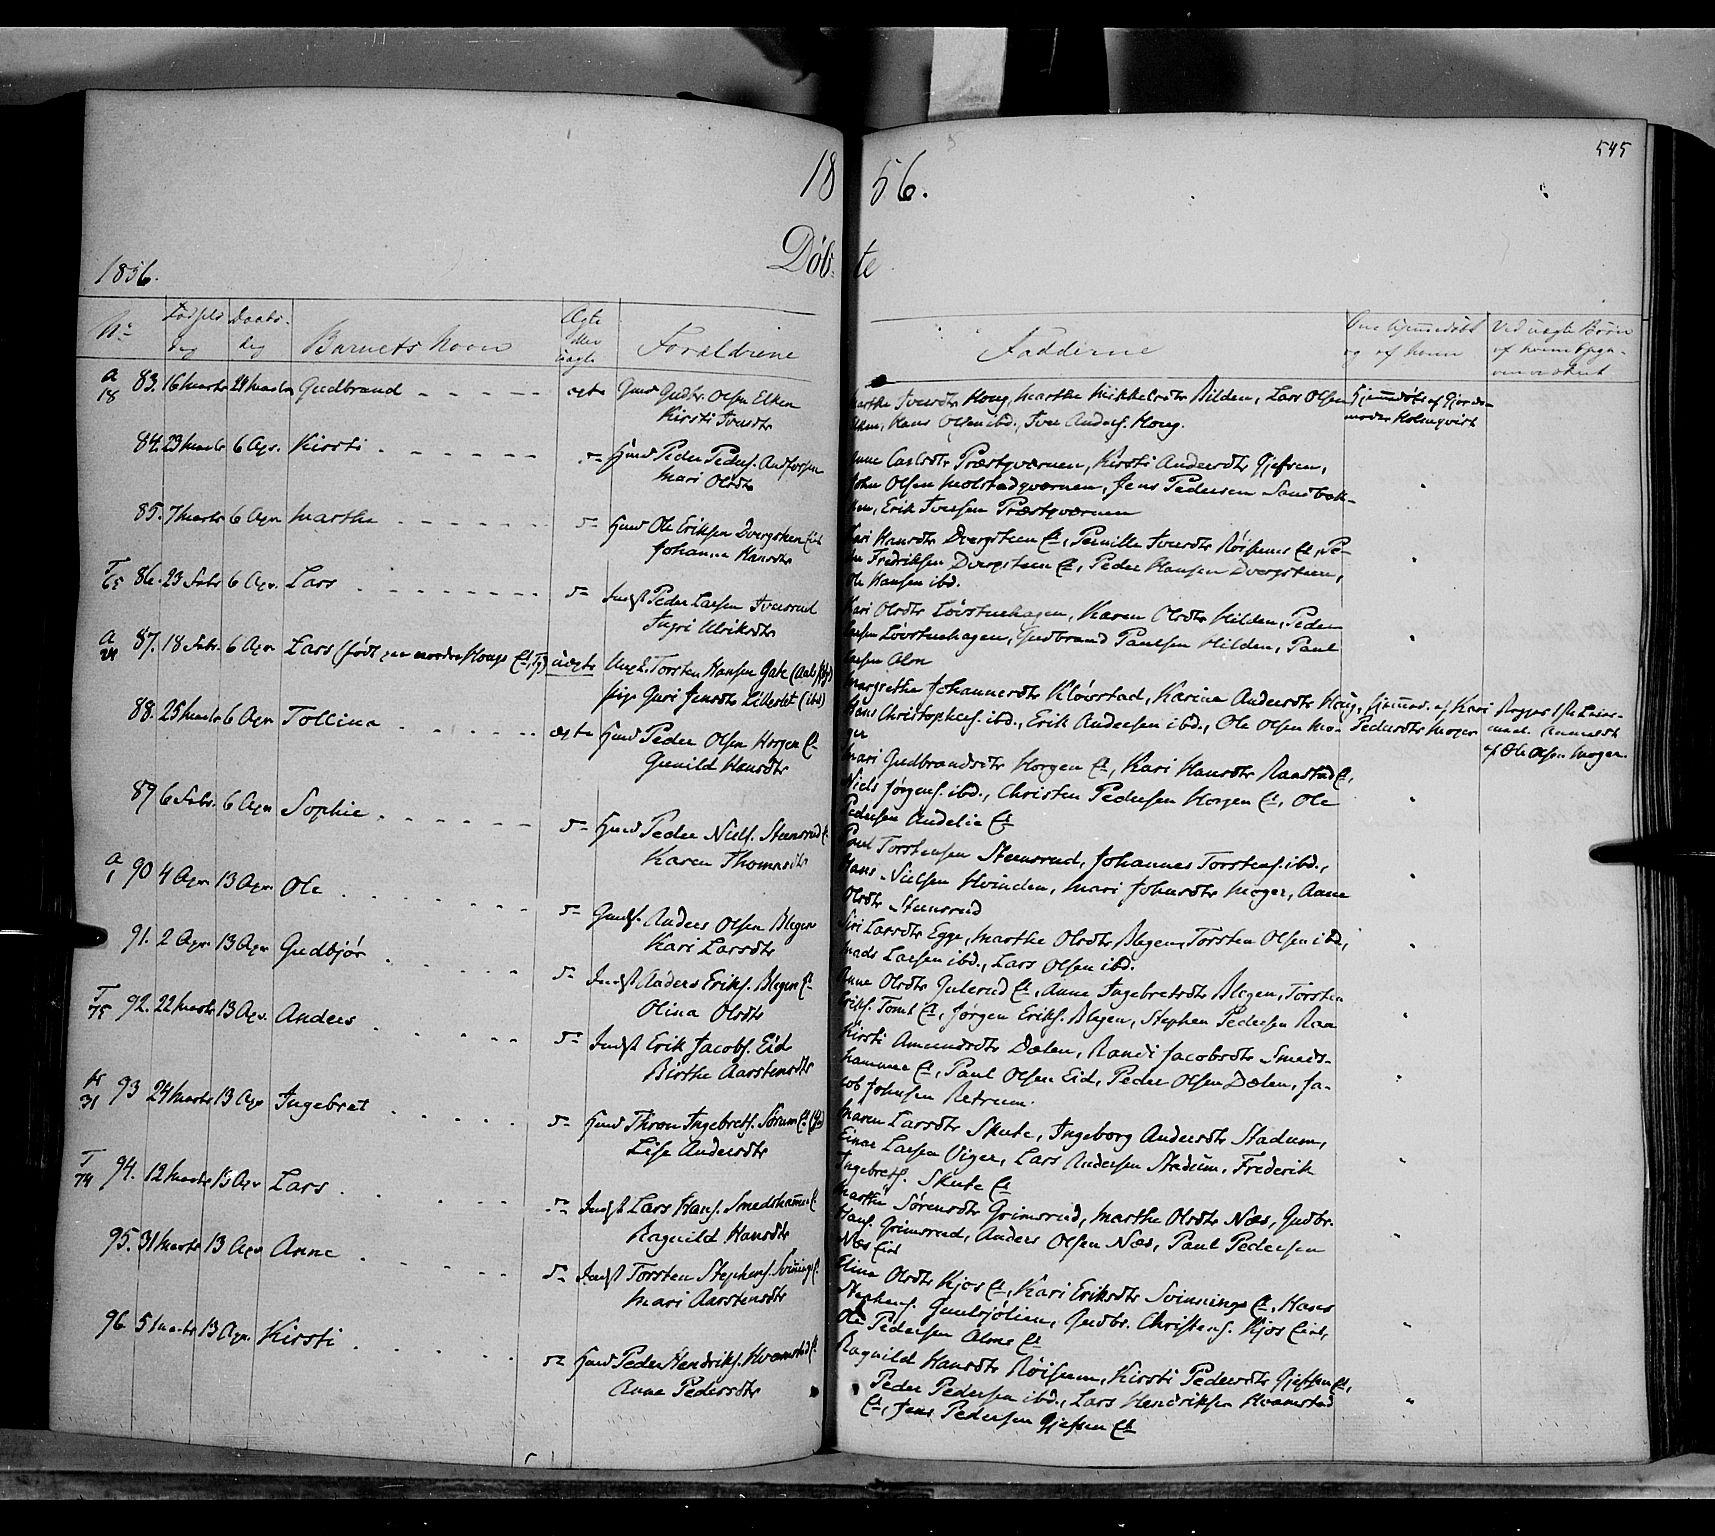 545
18 56.
Døb- te
1856.
No Fødsels Dag Daabs- dag Barnets Navn Ægte eller uægte Forældrene
Fadderne Om hjemmedøbt og af hvem Ved uægte Børn af hvem Opga- ven er skeet
a 18 83. 16 Marts 24 Marts Gudbrand ægte Gmd Gudbr. Olsen Elken
Kirsti Iversdtr
Marthe Iversdtr Houg, Marthe Mikkelsdtr Bilden, Lars Olsen
Elken, Hans Olsen ibd., Iver Anders. Houg.
Hjemmedøbt af Gjorde-
moder Holmqvist
84. 23 Marts 6 Apr. Kirsti Hmd Peder Peders.
Mari Olsdtr
Anne Carlsdtr Præstqværnen, Kirsti Andersdtr Gjefsen,
John Olsen Molstadqværnen, Jens Pedersen Sandbak-
ken, Erik Iversen Præstqværnen
85. 7 Marts 6 Apr Marthe Hmd Ole Eriksen Dvergsteen Eie
Johanne Hansdtr
Kari Hansdtr Dvergsteen E, Pernille Iversdtr Røisum E, Pe-
der Fredriksen Dvergsteen E, Peder Hansen Dvergsteen,
Ole Hansen ibd.
T 65 86. 23 Febr. 6 Apr. Lars Indst Peder Larsen Iversrud
Ingri Ulriksdtr
Kari Olsdtr Løvstuehagen, Karen Olsdtr Hilden, Peder
Larsen Løvstuehagen, Gudbrand Paulsen Hilden, Paul
Larsen Alm
a 24 87. 18 Febr. 6 Apr. Lars (født paa nordre Houg uægte Ungk. Torsten Hansen Gate
pige Guri Jensdtr Lilleslet (ibd)
Margrethe Johannesdtr Kløvstad, Karine Andersdtr Houg,
Hans Christophers. ibd., Erik Andersen ibd., Ole Olsen Mo-
ger
Hjemmed. af Kari
Pedersdtr Moger
af Ole Olsen Moger.
88. 25 Marts 6 Apr Tolline ægte Hmd Peder Olsen Horgen E
Gunild Hansdtr
Mari Gudbrandsdtr Horgen E, Kari Hansdtr Raastad E,
Niels Jørgens. ibd., Christen Pedersen Horgen E, Ole
Pedersen Andelie E
89 6 Febr. 6 Apr Sophie Hmd Peder Niels. Steensrud E
Karen Thomasdtr
Paul Torstensen Steensrud, Johannes Torstens. ibd.,
Hans Nielsen Hvinden, Mari Johnsdtr Moger, Anne
Olsdtr Steensrud
a 1 90 4 Apr 13 Apr Ole Gmdst. Anders Olsen Blegen
Kari Larsdtr
Siri Larsdtr Egge, Marthe Olsdtr Blegen, Torsten Olsen ibd.,
Mads Larsen ibd., Lars Olsen ibd.
91. 2 Apr 13 Apr Gudbjør Indst Anders Eriks. Blegen E
Olina Olsdtr
Anne Olsdtr Gulerud E, Anne Ingebretsdtr Blegen, Torsten
Eriks. Tomt E, Jørgen Eriks. Blegen, Stephen Pedersen Raa
T 75 92. 22 Marts 13 Apr. Anders Indst Erik Jacobs. Eid
Birthe Aarstensdtr
Kirsti Amundsdtr Dælen, Randi Jacobsdtr Smeds-
hammer E, Paul Olsen Eid, Peder Olsen Dælen, Ja-
cob Johnsen Retrum.
31 93 24 Marts 13 Apr Ingebret Hmd Thron Ingebrets. Sørum E
Lise Andersdtr
Maren Larsdtr Skute, Ingeborg Andersdtr Stadum,
Einar Larsen Viger, Lars Andersen Stadum, Frederik
Ingebrets. Skute E
T 74 94. 12 Marts 13 Apr Lars Indst Lars Hans. Smedshammer E
Ragnild Hansdtr
Marthe Sørensdtr Grimsrud, Marthe Olsdtr Næs, Gudbr.
Hans. Grimsrud, Anders Olsen Næs, Paul Pedersen
Næs Eie
95. 31 Marts 13 Apr Anne Indst Torsten Stephens. Svinning E
Mari Aarstensdtr
Eline Olsdtr Kjos E, Kari Eriksdtr Svinning E, Hans
Stephens. Gunbjølien, Gudbr. Christens. Kjos Eie,
Ole Pedersen Alme E
96 5 Marts 13 Apr. Kirsti Hmd Peder Hendriks. Hvamstad E
Anne Pedersdtr
Ragnild Hansdtr Røisum, Kirsti Pedersdtr Gjefsen E,
Peder Pedersen ibd., Lars Hendriksen Hvamstad
E, Jens Pedersen Gjefsen E